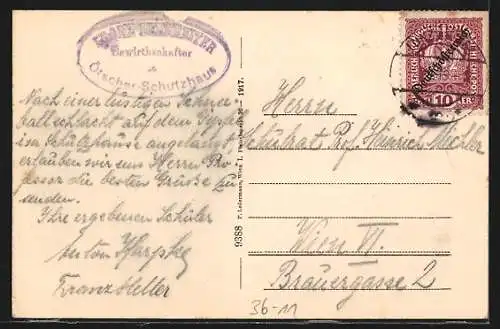 Bewirtschafter
Ötscher-Schutzhaus
Nach einer lustigen Schnee-
ballschlacht auf dem Gipfel
im Schutzhause angelangt,
erlauben wir uns Herrn Pro-
fessor die besten Grüße zu
senden.
Ihre ergebenen Schüler
Anton
Franz Heller
9388 F. Ledermann, Wien I. 1917.
DEUTSCHÖSTERREICH
10 HELLER
Herrn
Schulrat Prof. Heinrich
Wien VI.
Brauergasse 2
36-11